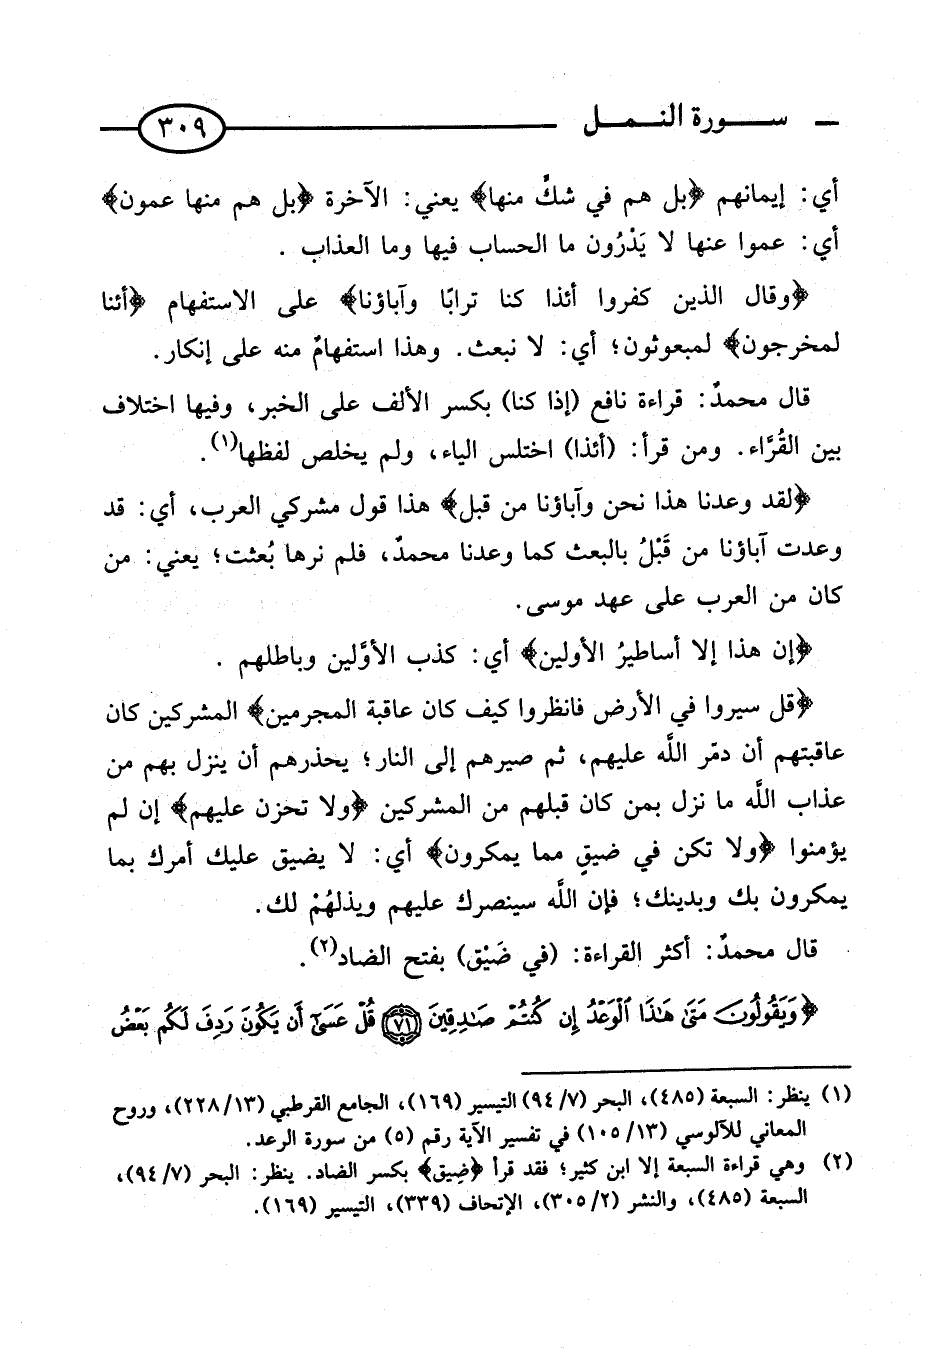 سورة النمل ٣٠٩
أي: إيمانهم ﴿بل هم في شكٍّ منها﴾ يعني: الآخرة ﴿بل هم منها عمون﴾
أي: عموا عنها لا يَدْرُون ما الحساب فيها وما العذاب .
﴿وقال الذين كفروا أئذا كنا ترابًا وآباؤنا﴾ على الاستفهام ﴿أئنا
لمخرجون﴾ لمبعوثون؛ أي: لا نبعث. وهذا استفهامٌ منه على إنكار.
قال محمدٌ: قراءة نافع (إذا كنا) بكسر الألف على الخبر، وفيها اختلاف
بين القُرَّاء. ومن قرأ: (أئذا) اختلس الياء، ولم يخلص لفظها(١).
﴿لقد وعدنا هذا نحن وآباؤنا من قبل﴾ هذا قول مشركي العرب، أي: قد
وعدت آباؤنا من قَبْلُ بالبعث كما وعدنا محمدٌ، فلم نرها بُعثت؛ يعني: من
كان من العرب على عهد موسى.
﴿إن هذا إلا أساطيرُ الأولين﴾ أي: كذب الأوَّلين وباطلهم .
﴿قل سيروا في الأرض فانظروا كيف كان عاقبة المجرمين﴾ المشركين كان
عاقبتهم أن دمّر اللَّه عليهم، ثم صيرهم إلى النار؛ يحذرهم أن ينزل بهم من
عذاب اللَّه ما نزل بمن كان قبلهم من المشركين ﴿ولا تحزن عليهم﴾ إن لم
يؤمنوا ﴿ولا تكن في ضيقٍ مما يمكرون﴾ أي: لا يضيق عليك أمرك بما
يمكرون بك وبدينك؛ فإن اللَّه سينصرك عليهم ويذلهُمْ لك.
قال محمدٌ: أكثر القراءة: (في ضَيْق) بفتح الضاد(٢).
﴿وَيَقُولُونَ مَتَىٰ هَٰذَا ٱلْوَعْدُ إِن كُنتُمْ صَٰدِقِينَ ٧١ قُلْ عَسَىٰٓ أَن يَكُونَ رَدِفَ لَكُم بَعْضُ
(١) ينظر: السبعة (٤٨٥)، البحر (٧/ ٩٤) التيسير (١٦٩)، الجامع القرطبي (١٣/ ٢٢٨)، وروح
المعاني للآلوسي (١٣/ ١٠٥) في تفسير الآية رقم (٥) من سورة الرعد.
(٢) وهي قراءة السبعة إلا ابن كثير؛ فقد قرأ ﴿ضِيق﴾ بكسر الضاد. ينظر: البحر (٧/ ٩٤)،
السبعة (٤٨٥)، والنشر (٢/ ٣٠٥)، الإتحاف (٣٣٩)، التيسير (١٦٩).